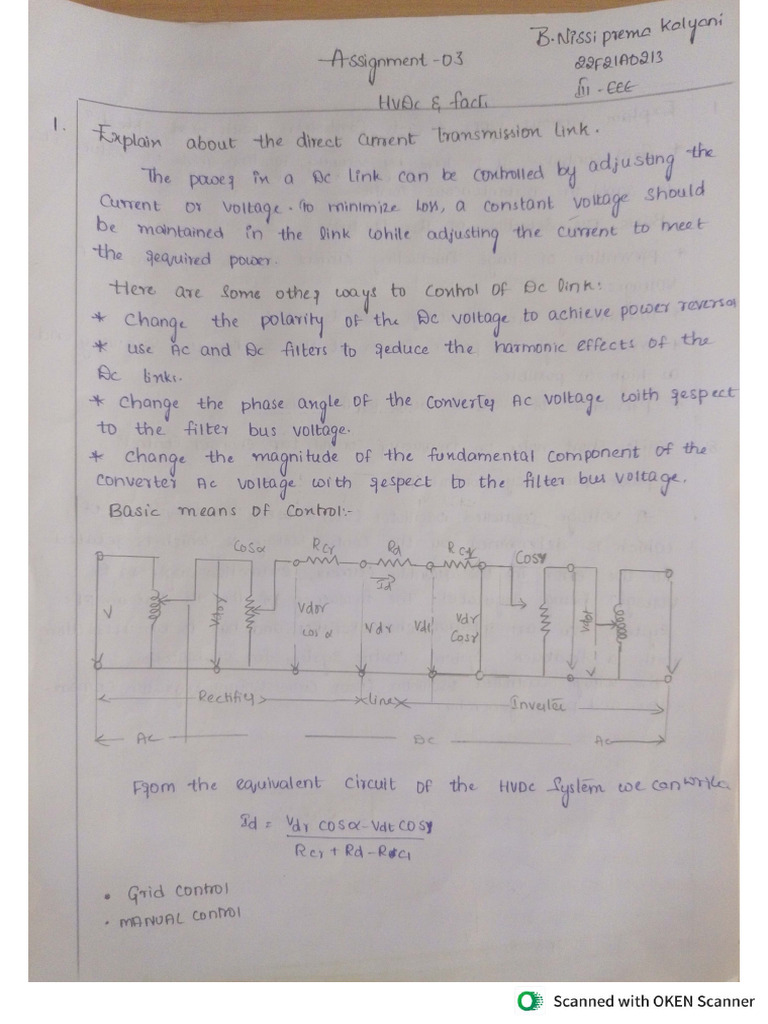 B.Nissi prema Kalyani
Assignment -03
22F21A0213
III - EEE
HVDC & facts
1.
Explain about the direct current transmission link.
The power in a Dc link can be controlled by adjusting the
Current or voltage. to minimize loss, a constant voltage should
be maintained in the link while adjusting the current to meet
the required power.
Here are some other ways to control of Dc link:
* Change the polarity of the Dc voltage to achieve power reversal
* use Ac and Dc filters to reduce the harmonic effects of the
Dc link.
* Change the phase angle of the converter Ac voltage with respect
to the filter bus voltage.
* Change the magnitude of the fundamental component of the
converter Ac voltage with respect to the filter bus voltage.
Basic means of control:-
Cosα Rcr Rd Rcr Cosγ
Id
V Vdor Vdor cosα Vdr Vdi Vdr Cosγ Vdor
Rectifier line Inverter
AC DC AC
From the equivalent circuit of the HVDC system we can write
Id = Vdr cosα-Vdt cosγ
Rcr + Rd - Rc1
• Grid control
• MANUAL control
Scanned with OKEN Scanner